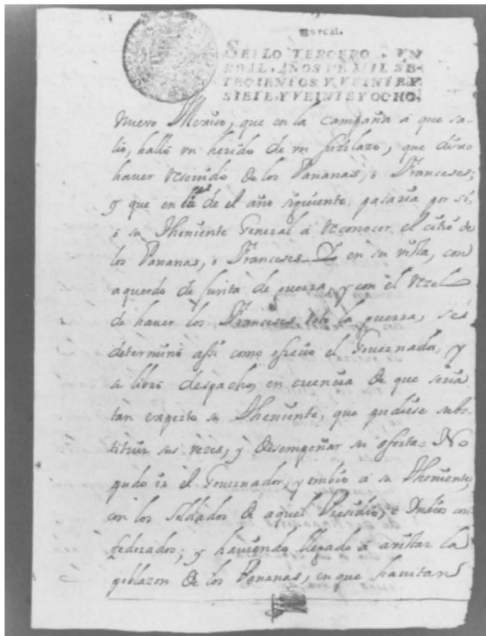 SELLO TERCERO, VN
REAL, AÑOS DE MIL SE-
TECIENTOS Y VEINTE Y
SIETE, Y VEINTE Y OCHO.
nuevo Mexico, que en la campaña à que sa-
lio, hallò vn herido de vn fusilazo, que dixo
haver recivido de los Pananas, ò Franceses;
y que en el de el año siguiente, pasaria por sì,
ò su Theniente General à reconocer el citio de
los Pananas, ò Franceses. Y en su vista, con
acuerdo de Junta de guerra, y con el rezelo
de haver los Franceses roto la guerra, se
determinò assi como ofrecio el Governador, y
se librò despacho, en creencia de que seria
tan experto su Theniente, que pudiese subs-
tituir sus vezes, y desempeñar su oferta. No
pudo ir el Governador, y embio à su Theniente,
con los soldados de aquel Presidio, è Indios con-
federados; y haviendo llegado à avistar la
poblazon de los Pananas, en que havitan